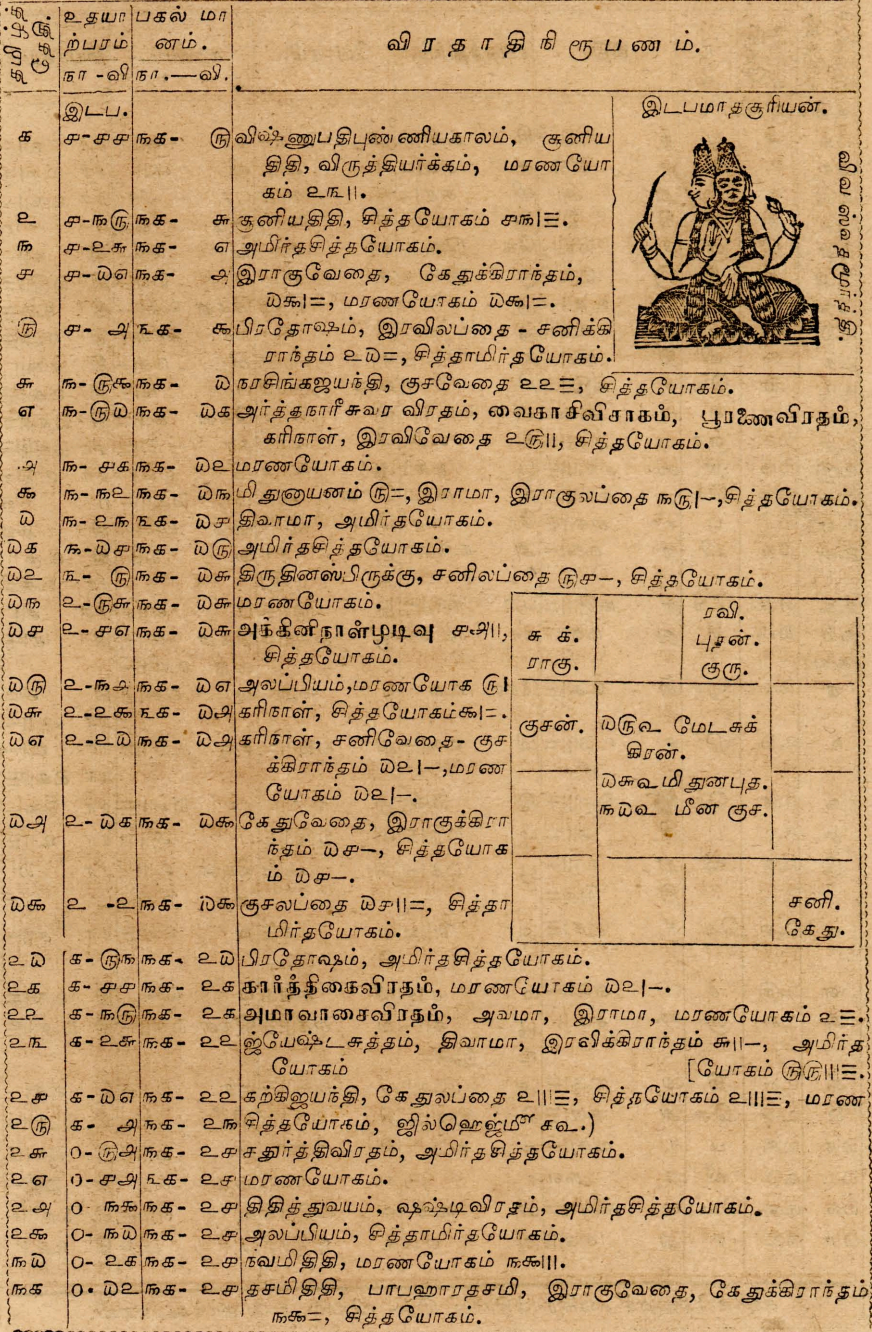 தமிழ்த்தேதி
உதயா பகல் மா
ற்பரம் னம். விரதாதிநிரூபணம்.
நா - வி நா.—வி.
இடப. இடபமாதசூரியன்.
௧ ௪-௪௪ ௩௧- ௫ விஷ்ணுபதிபுண்ணியகாலம், சூனிய
திதி, விருத்தியர்க்கம், மரணயோ
கம் ௨௩॥.
௨ ௪-௩௫ ௩௧- ௬ சூனியதிதி, சித்தயோகம் ௪௩|≡.
௩ ௪-௨௬ ௩௧- ௭ அமிர்தசித்தயோகம்.
௪ ௪-௰௭ ௩௧- ௮ இராகுவேதை, கேதுக்கிராந்தம்,
௰௯|=, மரணயோகம் ௰௯|=.
௫ ௪- ௮ ௩௧- ௯ பிரதோஷம், இரவிலப்தை - சனிக்கி
ராந்தம் ௨௰=, சித்தாமிர்தயோகம்.
விவஸ்வதமூர்த்தி.
௬ ௩-௫௯ ௩௧- ௰ நரசிங்கஜயந்தி, குசவேதை ௨௨≡, சித்தயோகம்.
௭ ௩-௫௰ ௩௧- ௰௧ அர்த்தநாரீசுவர விரதம், வைகாசிவிசாகம், பூரணைவிரதம்,
கரிநாள், இரவிவேதை ௨௫॥, சித்தயோகம்.
௮ ௩- ௪௧ ௩௧- ௰௨ மரணயோகம்.
௯ ௩- ௩௨ ௩௧- ௰௩ மிதுனாயனம் ௫=, இராமா, இராகுலப்தை ௩௫|–, சித்தயோகம்.
௰ ௩- ௨௩ ௩௧- ௰௪ திவாமா, அமிர்தயோகம்.
௰௧ ௩-௰௪ ௩௧- ௰௫ அமிர்தசித்தயோகம்.
௰௨ ௩- ௫ ௩௧- ௰௬ திருதினஸ்பிருக்கு, சனிலப்தை ௫௪–, சித்தயோகம்.
௰௩ ௨-௫௬ ௩௧- ௰௬ மரணயோகம்.
௰௪ ௨-௪௭ ௩௧- ௰௬ அக்கினிநாள்முடிவு ௪௮॥,
சித்தயோகம்.
௰௫ ௨-௩௮ ௩௧- ௰௭ அலப்பியம்,மரணயோக ௫|
௰௬ ௨-௨௯ ௩௧- ௰௮ கரிநாள், சித்தயோகம்௯|=.
௰௭ ௨-௨௰ ௩௧- ௰௮ கரிநாள், சனிவேதை- குச
க்கிராந்தம் ௰௨|–,மரண
யோகம் ௰௨|–.
௰௮ ௨- ௰௧ ௩௧- ௰௯ கேதுவேதை, இராகுக்கிரா
ந்தம் ௰௪–, சித்தயோக
ம் ௰௪–.
௰௯ ௨ -௨ ௩௧- ௰௯ குசலப்தை ௰௪॥=, சித்தா
மிர்தயோகம்.
சுக்.
ராகு.
ரவி.
புதன்.
குரு.
குசன்.
௰௫௳ மேடசுக்
கிரன்.
௰௬௳மிதுனபுத.
௩௰௳ மீன குச.
சனி.
கேது.
௨௰ ௧-௫௩ ௩௧- ௨௰ பிரதோஷம், அமிர்தசித்தயோகம்.
௨௧ ௧- ௪௪ ௩௧- ௨௧ கார்த்திகைவிரதம், மரணயோகம் ௰௨|–.
௨௨ ௧-௩௫ ௩௧- ௨௧ அமாவாசைவிரதம், அவமா, இராமா, மரணயோகம் ௨≡.
௨௩ ௧-௨௬ ௩௧- ௨௨ ஜ்யேஷ்டசுத்தம், திவாமா, இரவிக்கிராந்தம் ௬॥–, அமிர்த
யோகம் [யோகம் ௫௫|||≡.
௨௪ ௧-௰௭ ௩௧- ௨௨ கற்கிஜயந்தி, கேதுலப்தை ௨|||≡, சித்தயோகம் ௨|||≡, மரண
௨௫ ௧- ௮ ௩௧- ௨௩ சித்தயோகம், ஜில்ஹெஜ்௴ ௧௳.)
௨௬ ௦-௫௮ ௩௧- ௨௪ சதுர்த்திவிரதம், அமிர்தசித்தயோகம்.
௨௭ ௦-௪௮ ௩௧- ௨௪ மரணயோகம்.
௨௮ ௦- ௩௯ ௩௧- ௨௪ திதித்துவயம், ஷஷ்டிவிரதம், அமிர்தசித்தயோகம்.
௨௯ ௦- ௩௰ ௩௧- ௨௪ அலப்பியம், சித்தாமிர்தயோகம்.
௩௰ ௦- ௨௧ ௩௧- ௨௪ நவமிதிதி, மரணயோகம் ௩௯|||.
௩௧ ௦- ௰௨ ௩௧- ௨௪ தசமிதிதி, பாபஹாரதசமி, இராகுவேதை, கேதுக்கிராந்தம்
௩௯=, சித்தயோகம்.